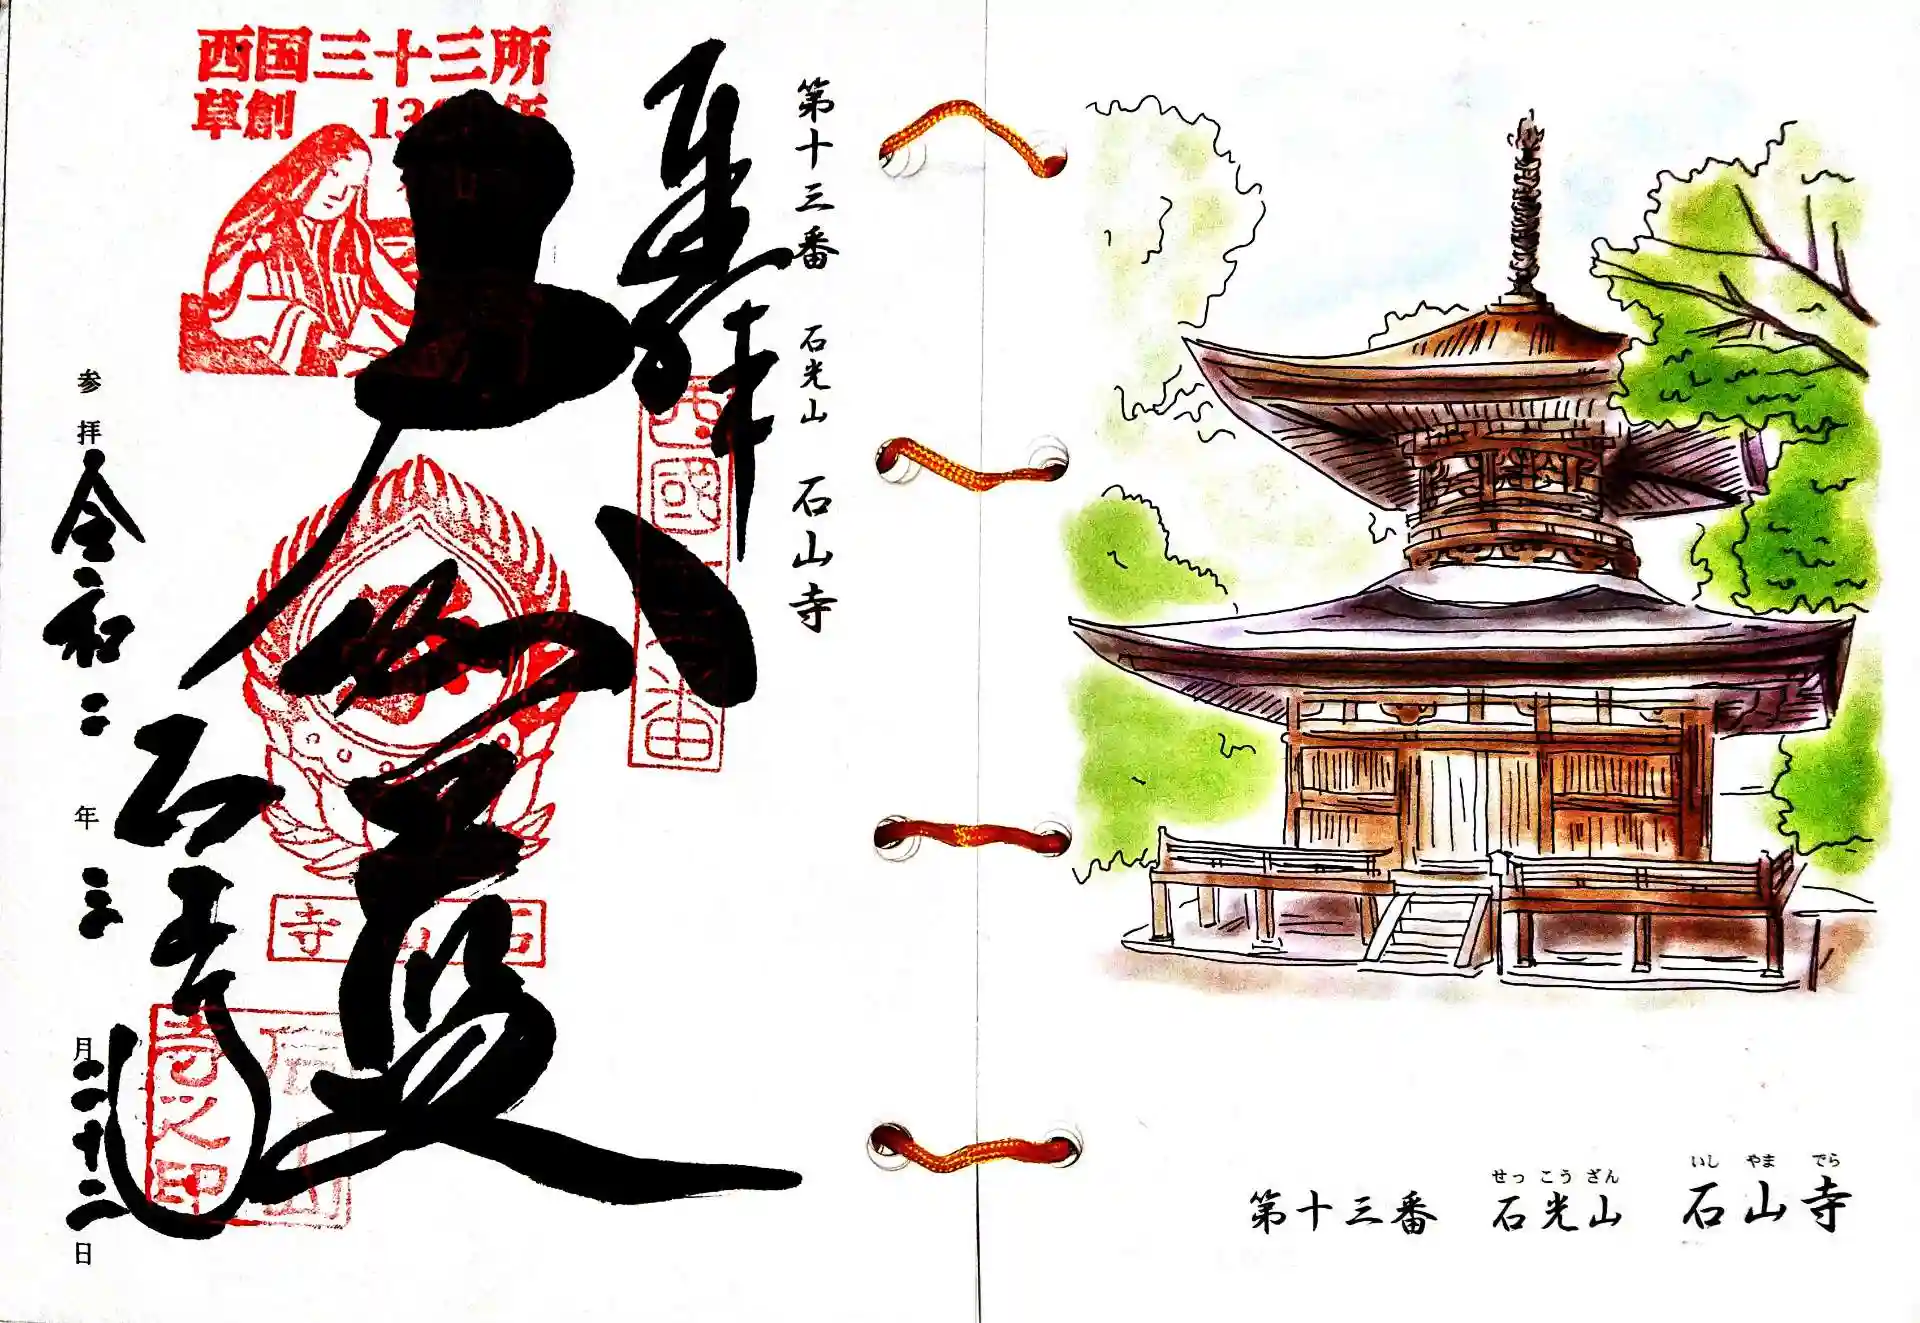 西国三十三所
草創 13 年
第十三番 石光山 石山寺
奉拝
西國十三番
大伽藍
石山寺
石山寺
石山寺之印
参拝 令和二年三月二十二日
第十三番 石光山 石山寺
せっこうざん いしやまでら